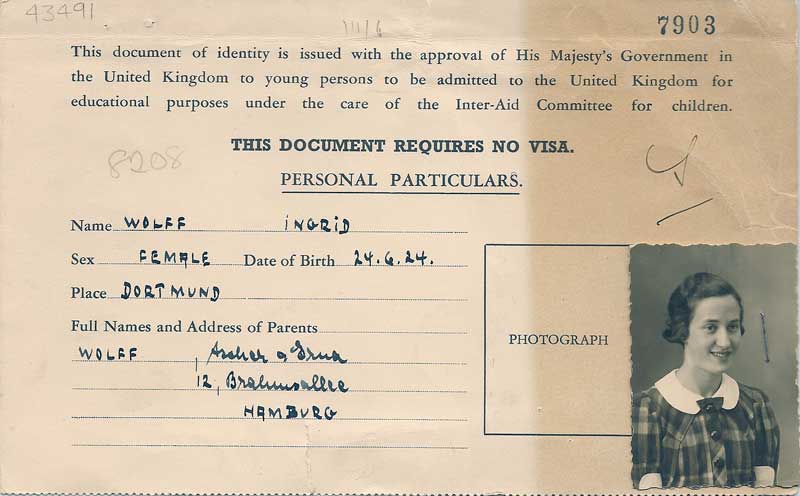 43491
111/6
7903
This document of identity is issued with the approval of His Majesty's Government in
the United Kingdom to young persons to be admitted to the United Kingdom for
educational purposes under the care of the Inter-Aid Committee for children.
THIS DOCUMENT REQUIRES NO VISA.
8208
PERSONAL PARTICULARS.
Name WOLFF INGRID
Sex FEMALE Date of Birth 24.6.24.
Place DORTMUND
Full Names and Address of Parents
WOLFF, Ascher & Erna
12, Brahmsallee
HAMBURG
PHOTOGRAPH